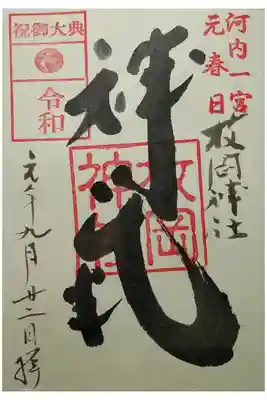 河内一宮
元春日
枚岡神社
枚岡神社
祝御大典
令和
元年九月廿二日拝